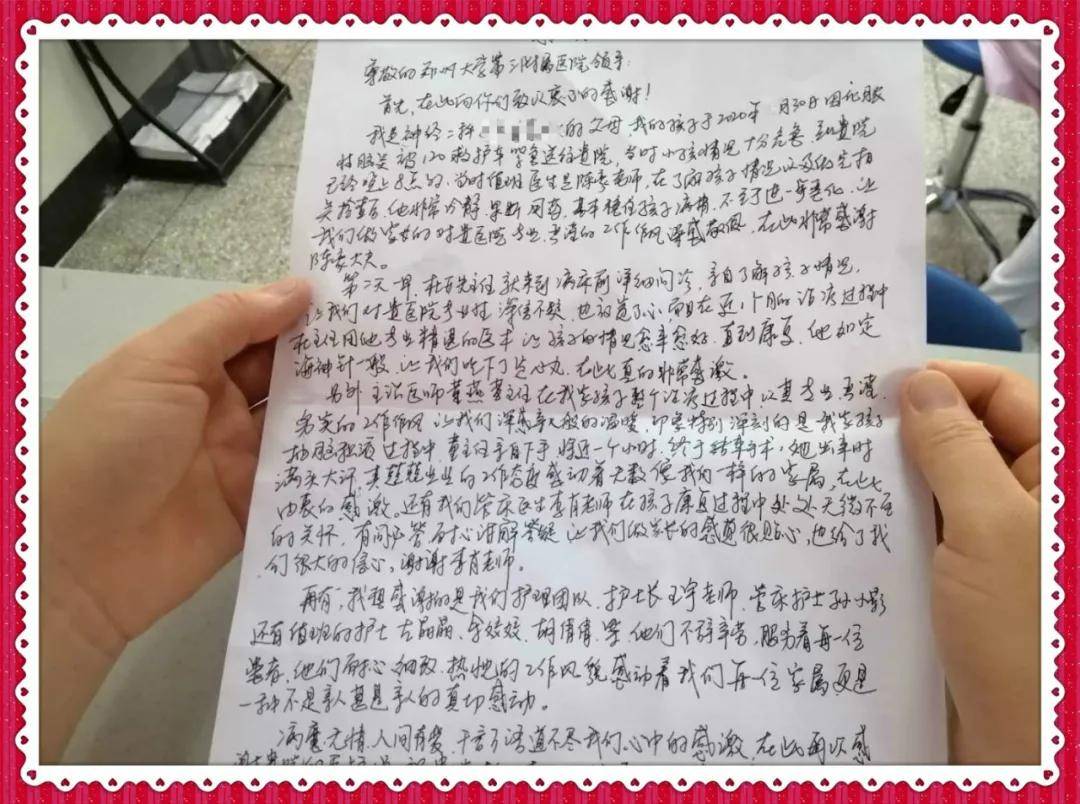 尊敬的郑州大学第三附属医院领导:
首先,在此向你们致以衷心的感谢!
我是神经二科 的父母,我的孩子于2020年 月30日因化脓
性脑炎被120救护车紧急送往贵院,当时小孩情况十分危急,到贵院
已经晚上8点多,当时值班医生是陈 老师,在了解孩子情况以及做完相
关检查后,他非常冷静,果断用药,基本稳住孩子病情,不至于进一步恶化,让
我们做家长的对贵医院专业,严谨的工作作风深感敬佩,在此非常感谢
陈 大夫。
第二天一早,杜 主任 来到病床前详细问诊,亲自了解孩子情况,
让我们对贵医院专业性深信不疑,也放宽了心,而且在近1个月的治疗过程中
杜主任用他专业精湛的医术,让孩子的情况愈来愈好,直到康复,他如定
海神针一般,让我们吃下了定心丸,在此真的非常感激。
另外主治医师黄燕 主任在我家孩子整个治疗过程中,以其专业,严谨,
务实的工作作风,让我们深感亲人般的温暖,印象特别深刻的是我家孩子
抽脑积液过程中,黄主任亲自下手将近一个小时,终于结束手术,她出来时
满头大汗,其兢兢业业的工作态度感动着无数像我们一样的家属,在此
由衷的感激。还有我们管床医生李育老师在孩子康复过程中处处无微不至
的关怀,有问必答,耐心讲解答疑,让我们做家长的感觉很贴心,也给了我
们很大的信心,谢谢李育老师。
再有,我想感谢的是我们护理团队,护士长王宇老师,管床护士孙小影
还有值班的护士左晶晶、 姣姣、胡倩倩,等,他们不辞辛苦,服务着每一位
患者,他们耐心、细致、热忱的工作风貌感动着我们每一位家属,更是
一种不是亲人甚是亲人的真切感动。
病魔无情,人间有爱,千言万语道不尽我们心中的感激,在此再次感